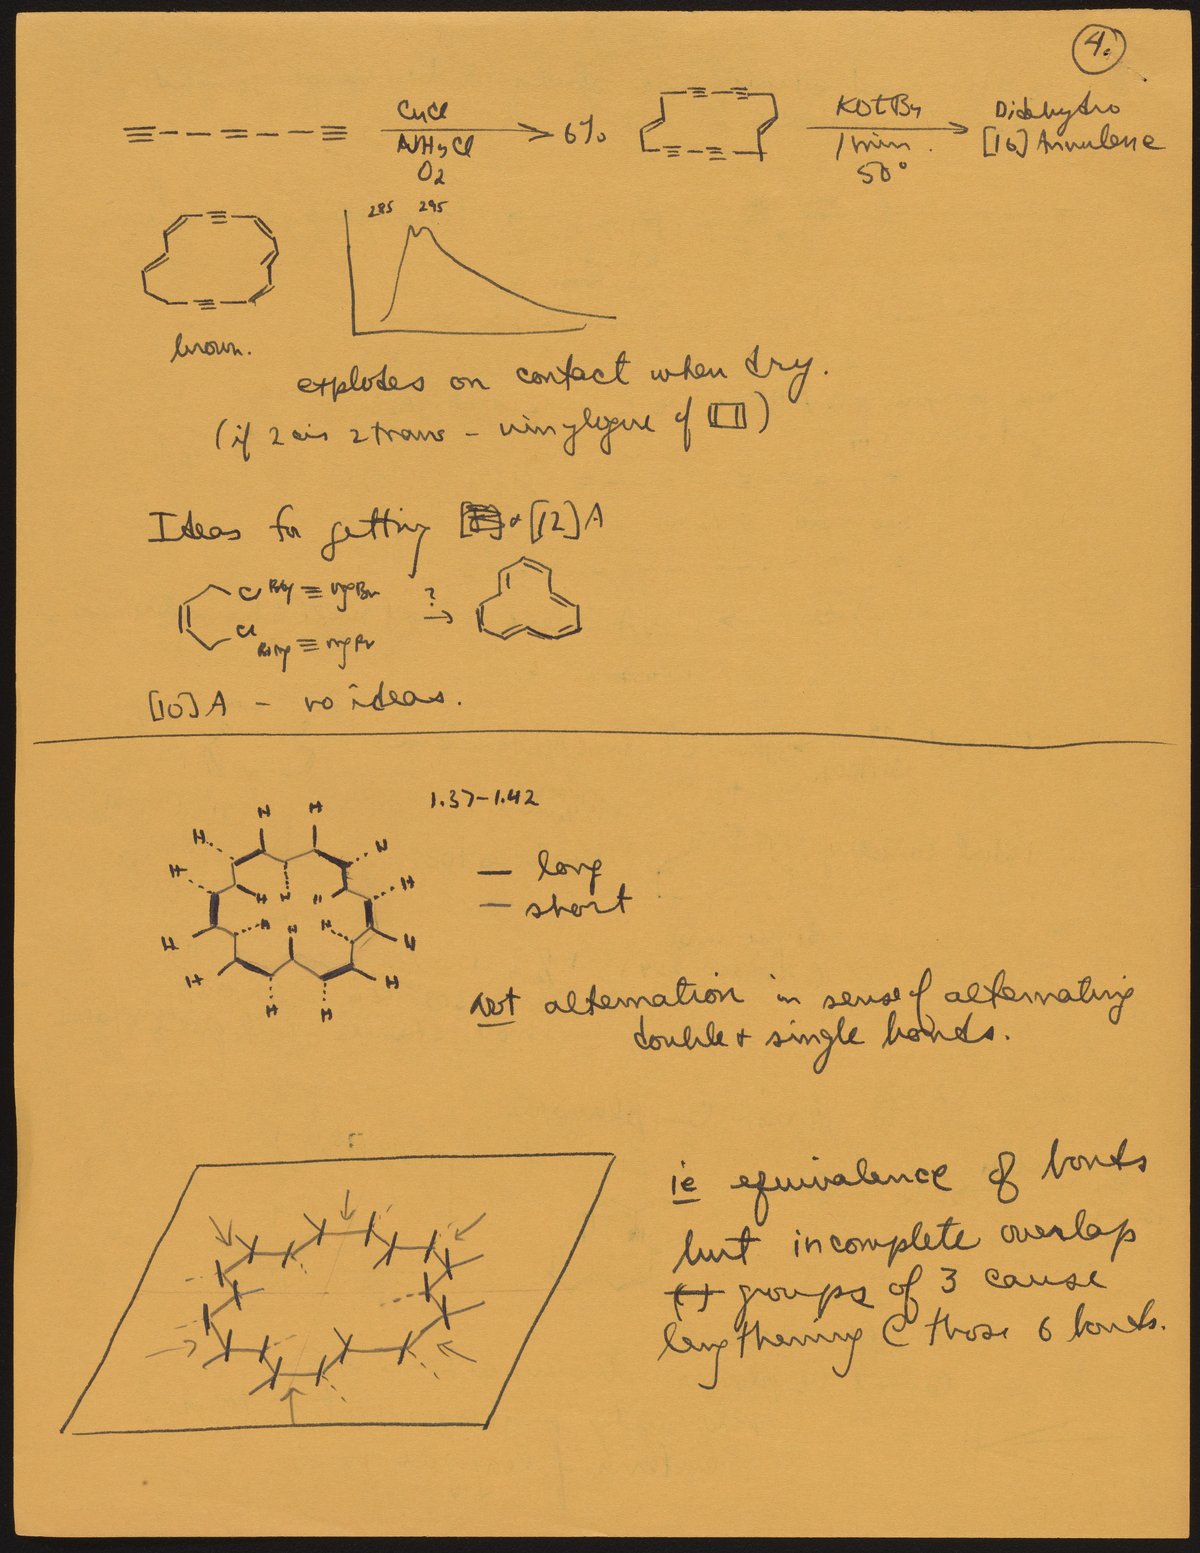 4.
CuCl
NH4Cl
O2
6%
KOtBu
1 min.
50°
Didehydro
[16] Annulene
285 295
brown.
explodes on contact when dry.
(if 2 cis 2 trans - vinylogue of )
Ideas for getting & [12] A
Cl BrMg ≡ MgBr
?
Cl BrMg ≡ MgBr
[10] A - no ideas.
1.37-1.42
H H
H H
H H
H H H
H H H
H H
H H
H H
— long
— short
not alternation in sense of alternating
double & single bonds.
ie equivalence of bonds
but incomplete overlap
groups of 3 cause
lengthening C those 6 bonds.